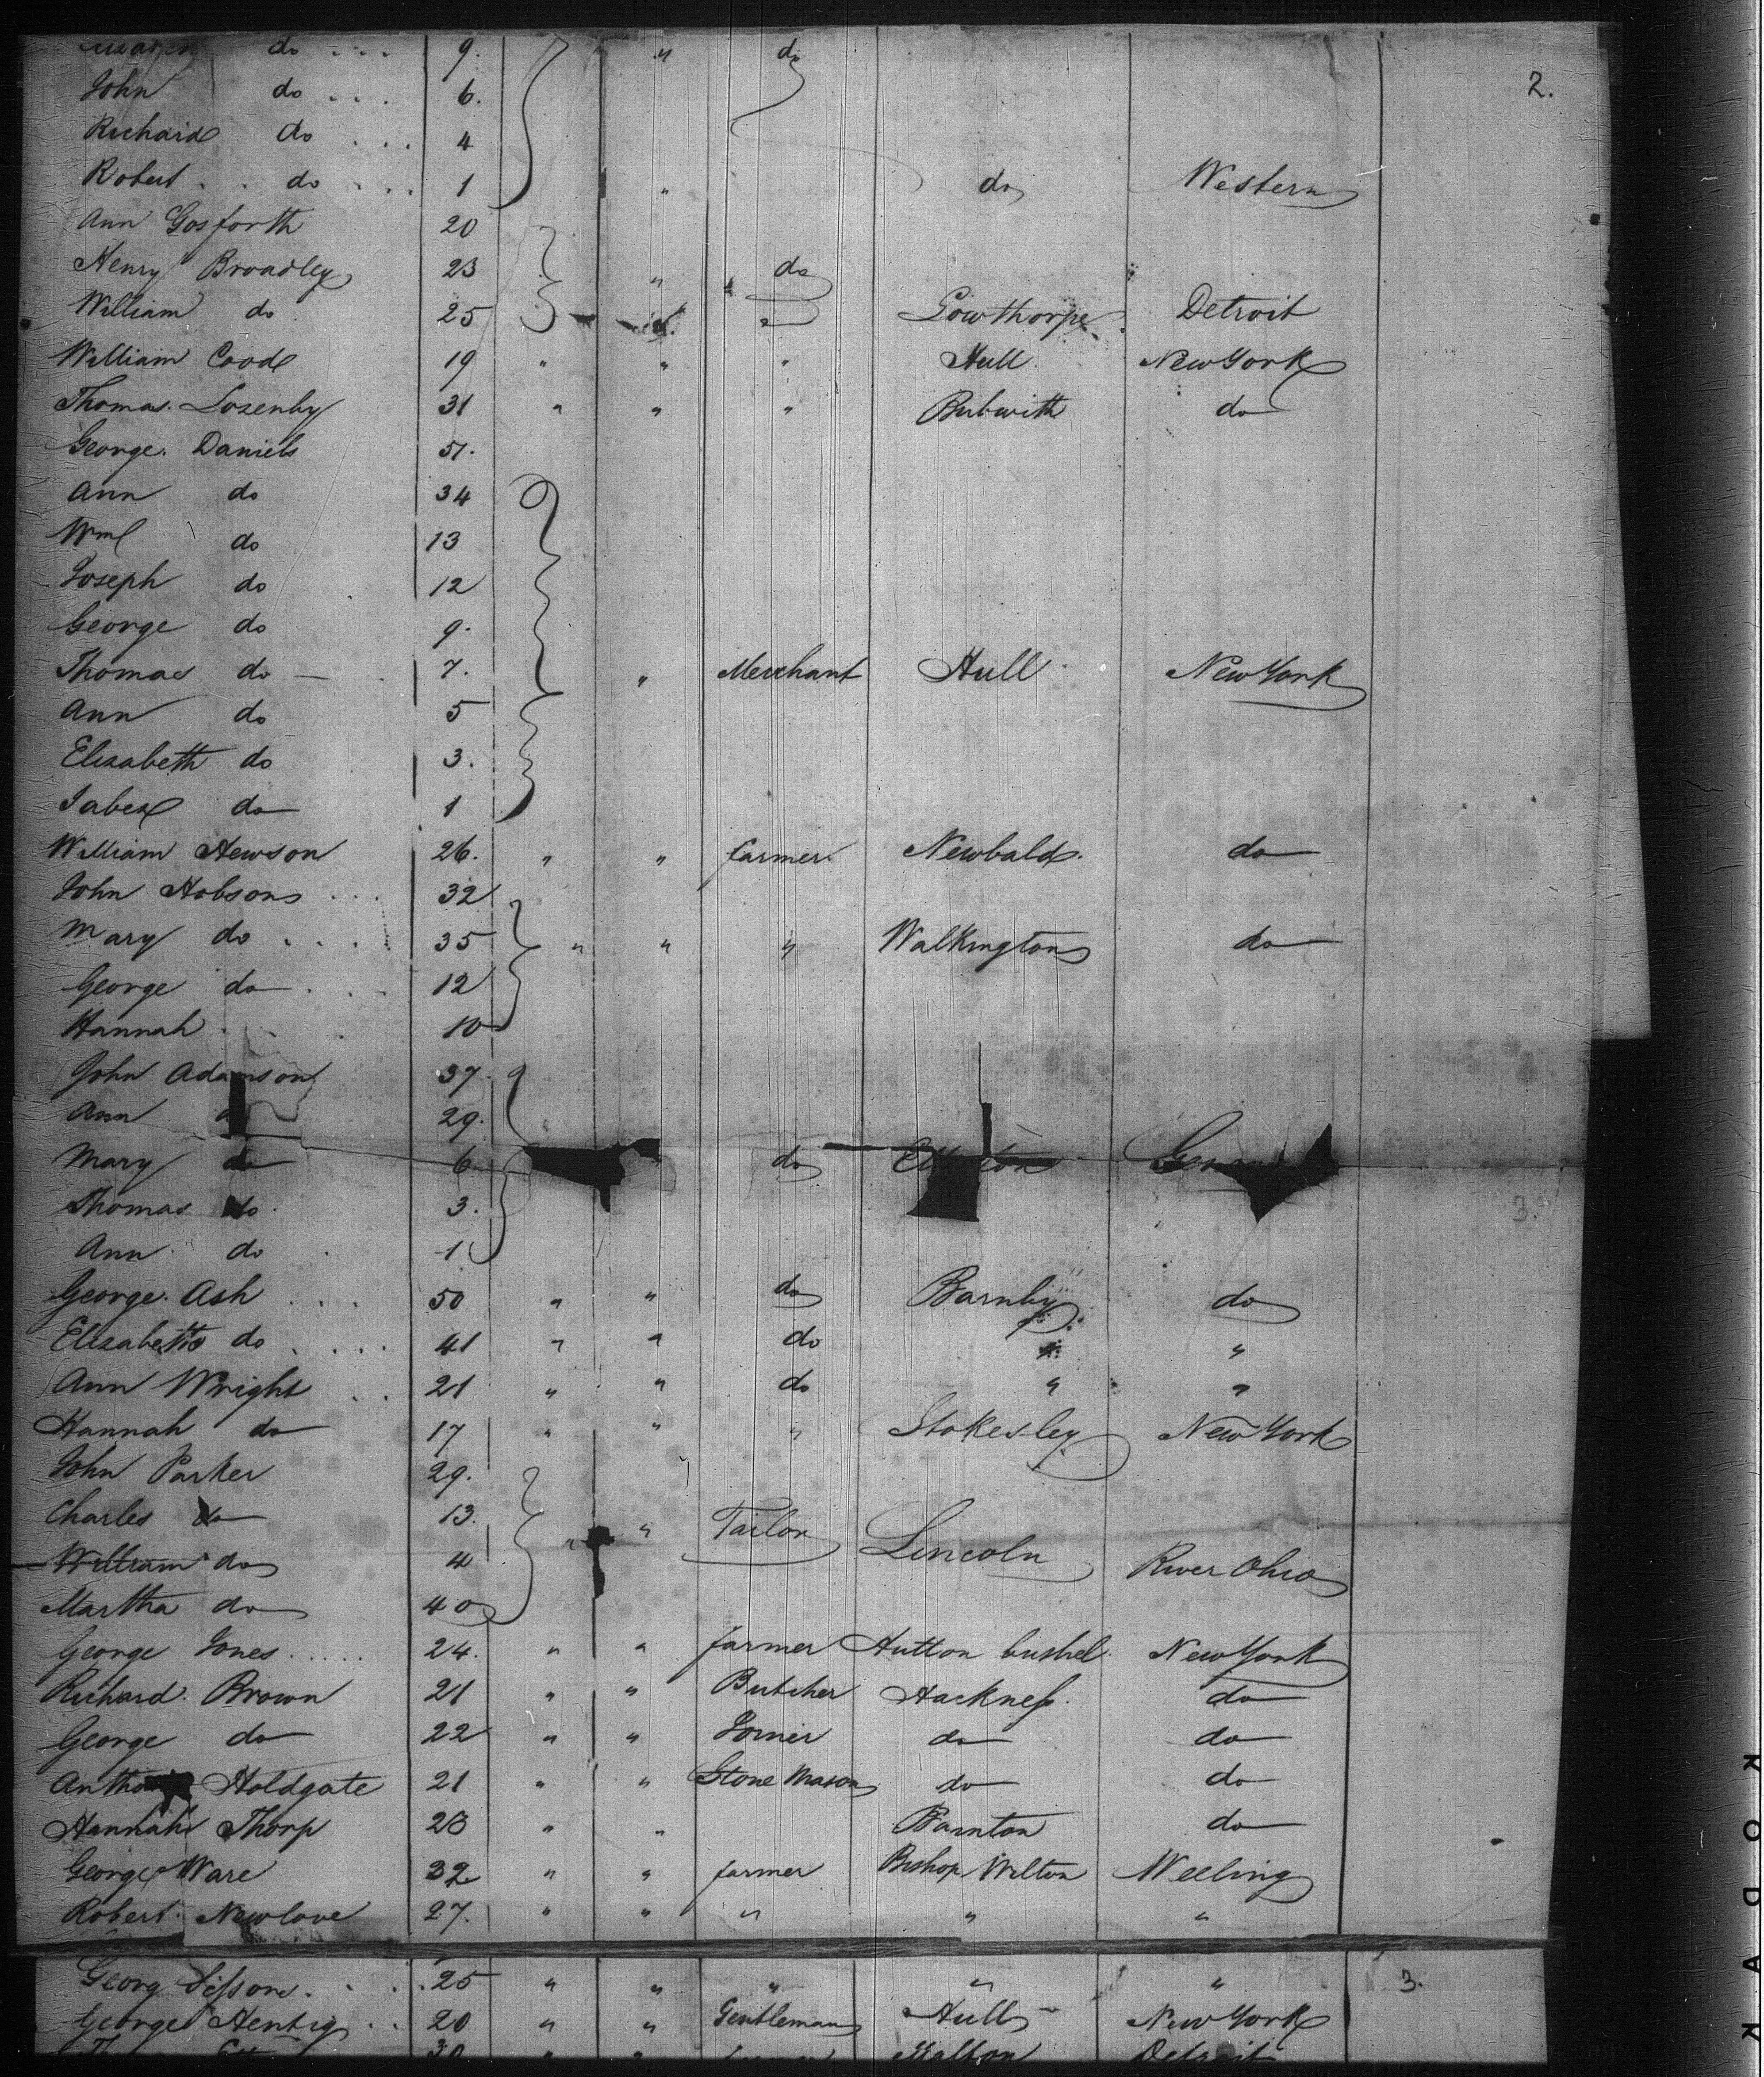 do 9. " do
John do 6. 2.
Richard do 4
Robert do 1 " do Western
Ann Gosforth 20
Henry Broadley 23 " " do
William do 25 " Gowthorpe Detroit
William Coode 19 " " " Hull New York
Thomas Lozenby 31 " " " Bubwith do
George Daniels 51.
Ann do 34
Wm do 13
Joseph do 12
George do 9.
Thomas do 7. " Merchant Hull New York
Ann do 5
Elizabeth do 3.
Jabez do 1
William Hewson 26. " " farmer Newbald do
John Hobson 32
Mary do 35 " " " Walkington do
George do 12
Hannah 10
John Adamson 37.
Ann 29.
Mary do 6 do
Thomas do 3. 3.
Ann do 1
George Ash 50 " " do Barnby do
Elizabeth do 41 " " do " "
Ann Wright 21 " " do " "
Hannah do 17 " " " Stokesley New York
John Parker 29.
Charles do 13. " " Tailor Lincoln River Ohio
William do 4
Martha do 40
George Jones 24. " " farmer Hutton bushel New York
Richard Brown 21 " " Butcher Hackness do
George do 22 " " Joiner do do
Holdgate 21 " " Stone Mason do do
Hannah Thorp 23 " " Barnton do
George Ware 32 " " farmer Bishop Wilton Weeling
Robert Newlove 27. " " " " "
Georg Sisson 25 " " " " " 3.
George Hentig 20 " " Gentleman Hull New York
30 " " Malton Detroit
KODAK